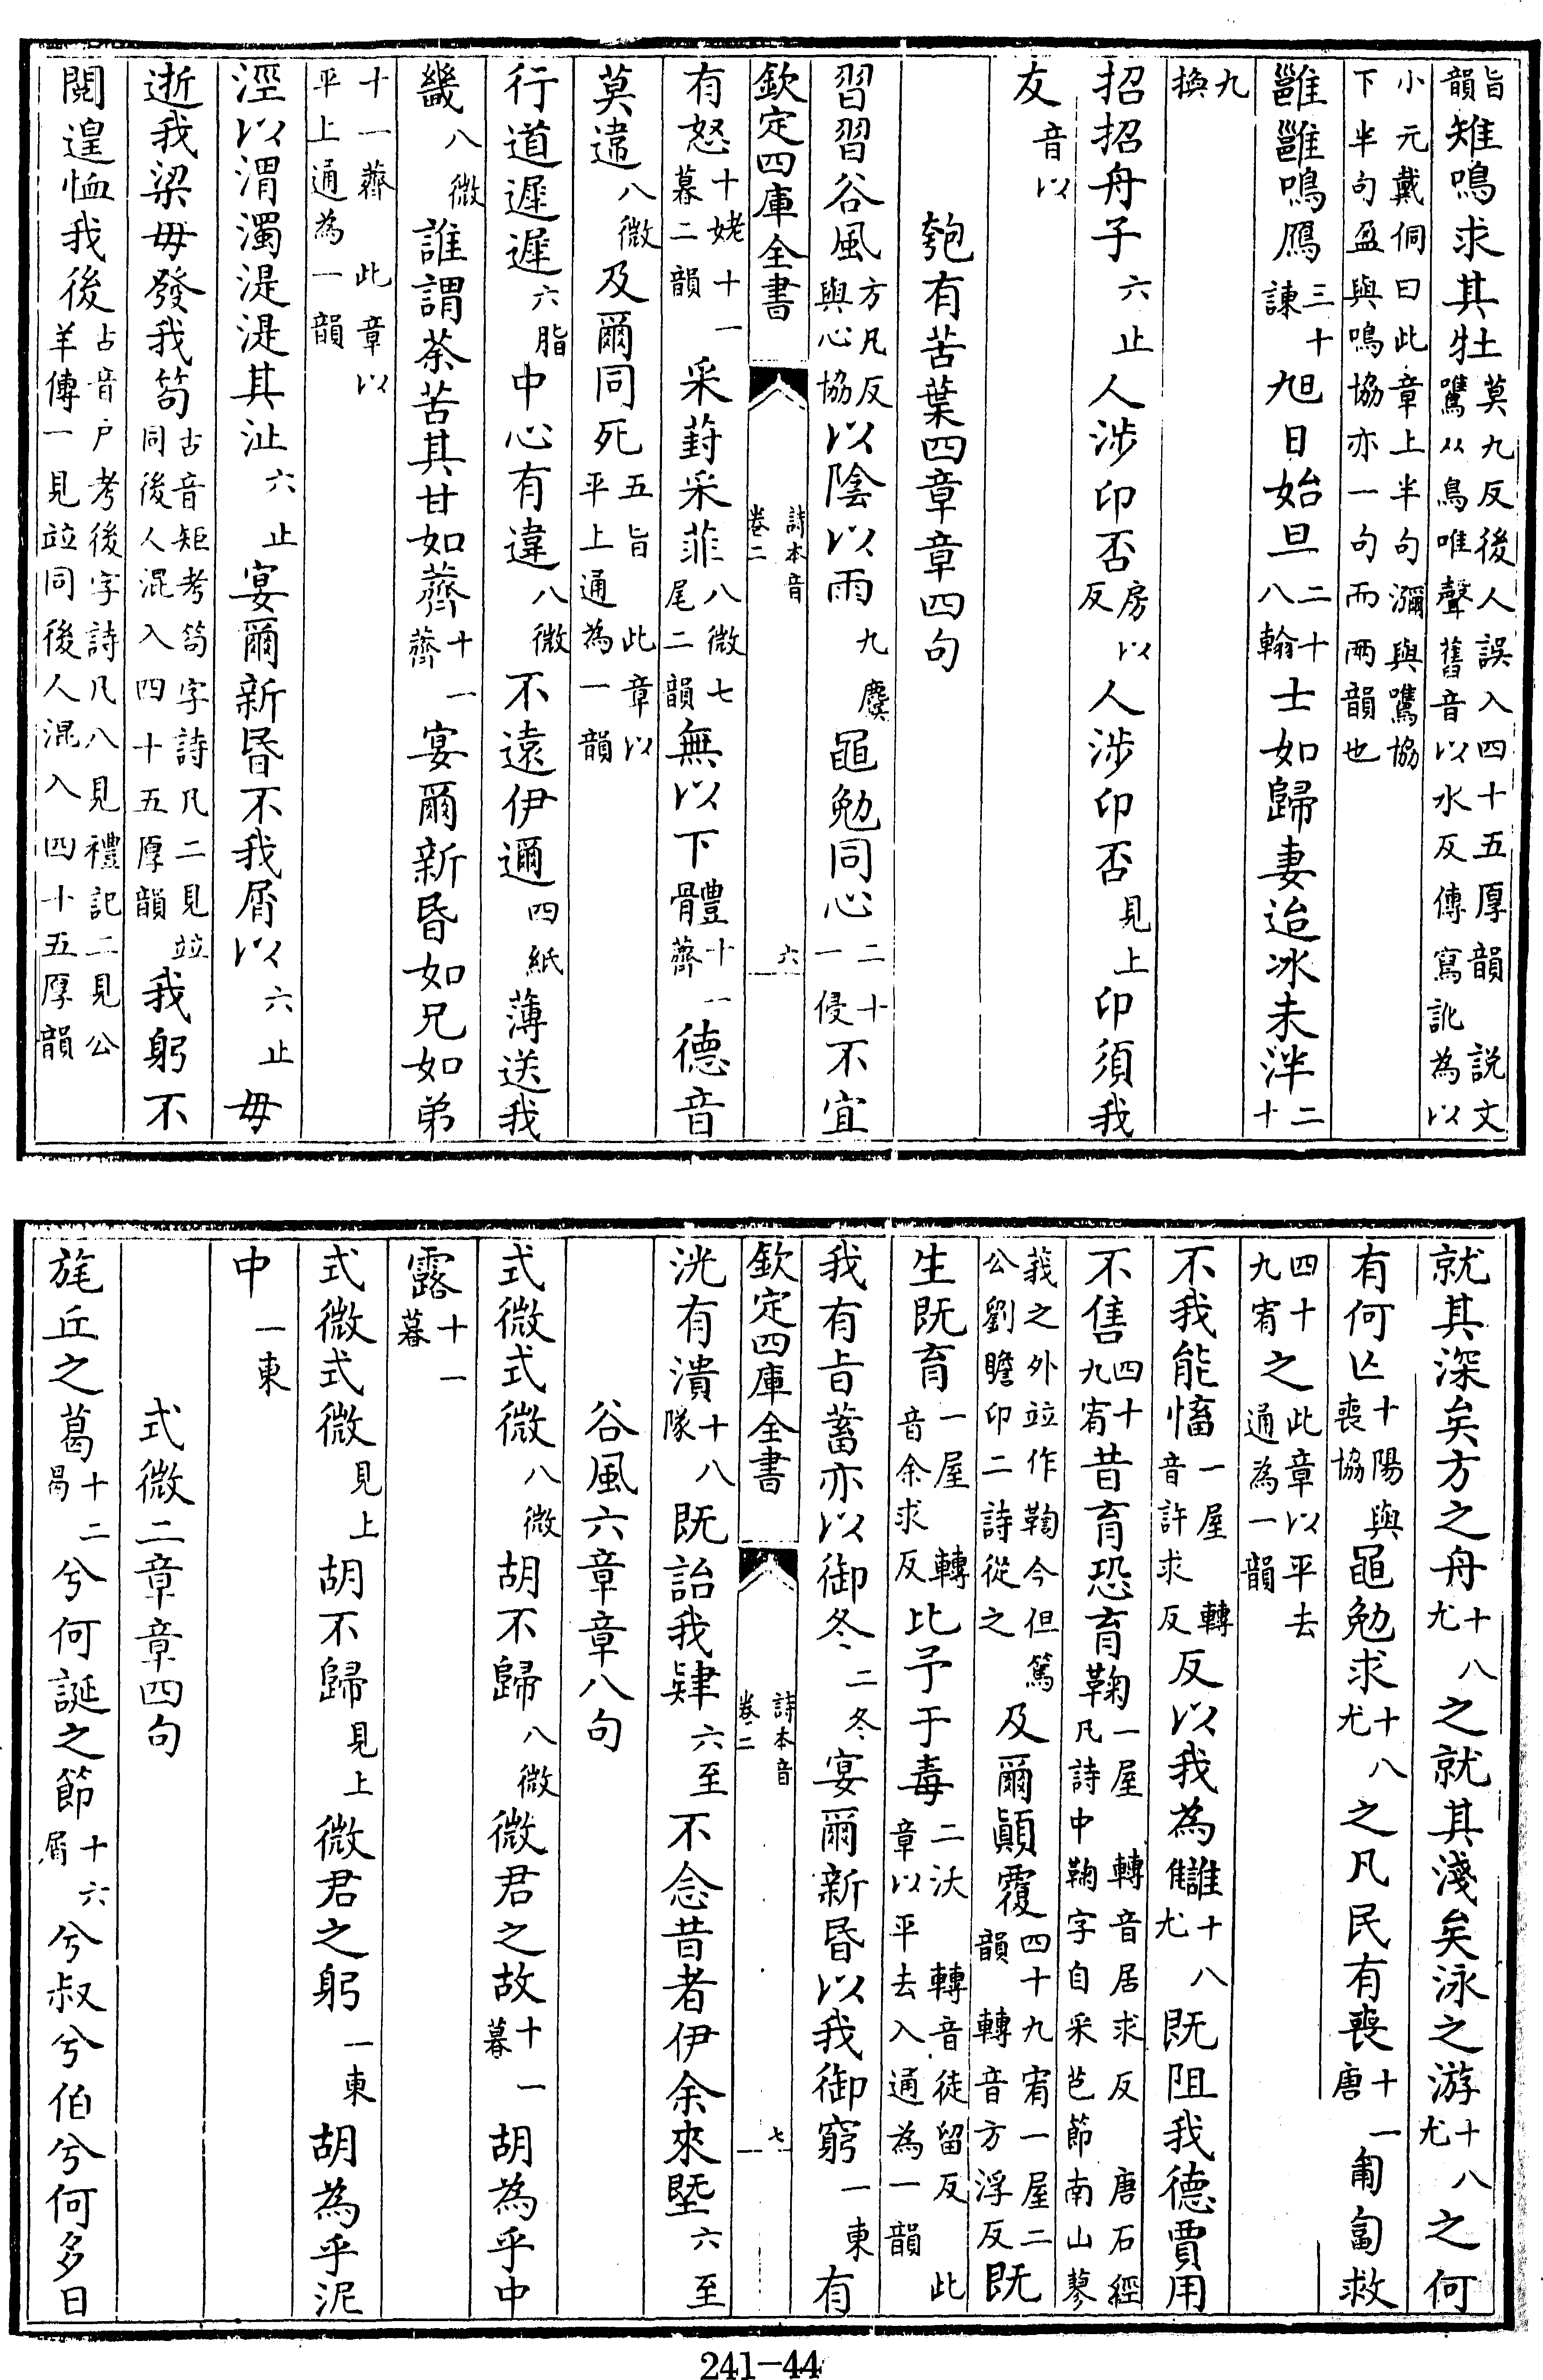 旨韻雉鳴求其牡莫九反後人誤入四十五厚韻 説文鷕从鳥唯聲舊音以水反傳寫訛為以
小元戴侗曰此章上半句瀰與鷕協下半句盈與鳴協亦一句而兩韻也
雝雝鳴鴈三十諫旭日始旦二十八翰士如歸妻迨冰未泮二十
九換
招招舟子六止人涉卬否房以反人涉卬否見上卬須我
友音以
匏有苦葉四章章四句
習習谷風方凡反與心協以陰以雨九麌黽勉同心二十一侵不宜
欽定四庫全書 詩本音 卷二 六
有怒十姥十一暮二韻采葑采菲八微七尾二韻無以下體十一薺德音
莫違八微及爾同死五旨 此章以平上通為一韻
行道遲遲六脂中心有違八微不遠伊邇四紙薄送我
畿八微誰謂荼苦其甘如薺十一薺宴爾新昏如兄如弟
十一薺 此章以平上通為一韻
涇以渭濁湜湜其沚六止宴爾新昏不我屑以六止毋
逝我梁毋發我笱古音矩考笱字詩凡二見竝同後人混入四十五厚韻我躬不
閱遑恤我後古音戶考後字詩凡八見禮記二見公羊傳一見竝同後人混入四十五厚韻
就其深矣方之舟十八尤之就其淺矣泳之游十八尤之何
有何亡十陽與喪協黽勉求十八尤之凡民有喪十一唐匍匐救
四十九宥之此章以平去通為一韻
不我能慉一屋 轉音許求反反以我為讎十八尤既阻我德賈用
不售四十九宥昔育恐育鞠一屋 轉音居求反 唐石經凡詩中鞠字自采芑節南山蓼
莪之外竝作鞫今但篤公劉瞻卬二詩從之及爾顛覆四十九宥一屋二韻 轉音方浮反既
生既育一屋 轉音余求反比予于毒二沃 轉音徒留反 此章以平去入通為一韻
我有旨蓄亦以御冬二冬宴爾新昏以我御窮一東有
欽定四庫全書 詩本音 卷二 七
洸有潰十八隊既詒我肄六至不念昔者伊余來墍六至
谷風六章章八句
式微式微八微胡不歸八微微君之故十一暮胡為乎中
露十一暮
式微式微見上胡不歸見上微君之躬一東胡為乎泥
中一東
式微二章章四句
旄丘之葛十二曷兮何誕之節十六屑兮叔兮伯兮何多日
241-44